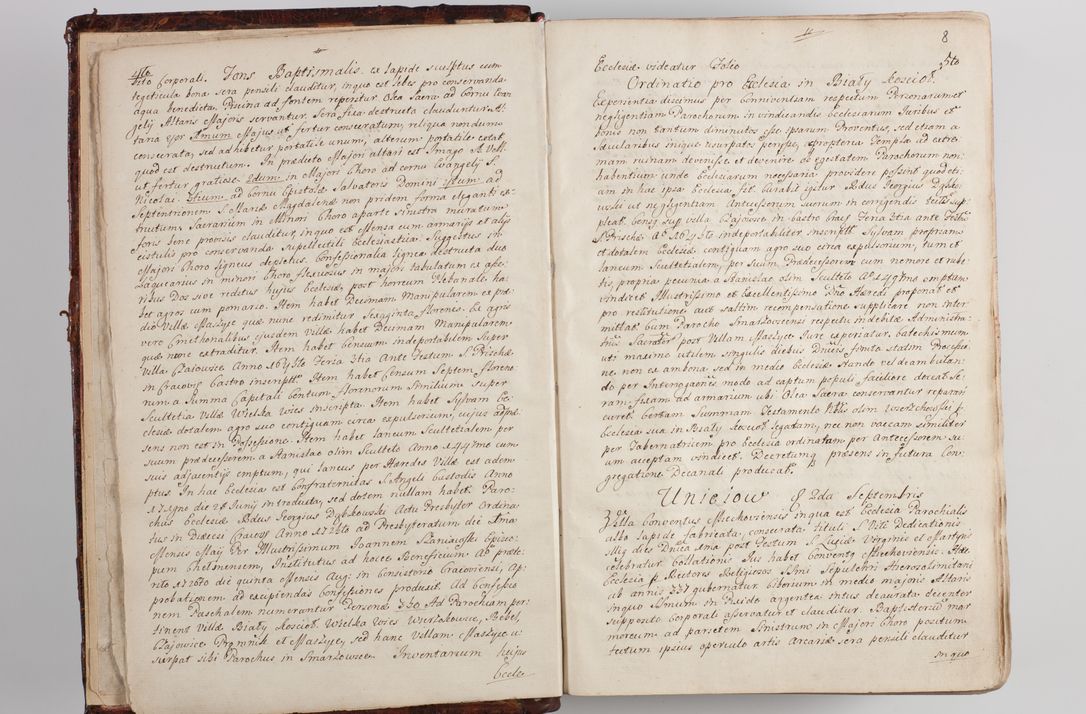 4to
sito Corporali. Fons Baptismalis ex lapide sculptus cum
tegeticula bona sera pensili clauditur, in quo est lebes pro conservanda
aqua benedicta. Piscina ad fontem reperitur Olea Sacra ad Cornu Evan
gelij Altaris Majoris servantur. Sera fixa destructa clauduntur. Al
taria 4tuor. 1mum Majus ut fertur consecratum, reliqua nondum
consecrata, sed adhibetur portatile unum, alterum portatile extat
quod est destructum. In praedicto Majori altari est Imago S. Valt.
ut fertur gratiose. 2dum in Majori Choro ad cornu Evangelij S.
Nicolai. 3tium ad Cornu Epistolae Salvatoris Domini 4tum ad
Septentrionem S. Mariae Magdalenae non pridem forma eleganti ex-
tructum. Sacrarium in Minori Choro aparte Sinistra muratum
foris bene provisis clauditur, in quo est Mensa cum armarijs et alijs
cistulis pro conservanda Supellectili Ecclesiastica. Suggestus in
Majori Choro ligneus depictus. Confessionalia lignea destructa duo
Laquearius in minori Choro flexuosus in majori tabulatum ex asse-
ribus Dos sive reditus hujus Ecclesiae, post horreum Plebanale ha-
bet agros cum pomario. Item habet Decimam Manipularem ex prae-
dio Villae Maszyce quae nunc redimitur Sexaginta Florenis. Ex agris
vero Cmethonalibus ejusdem Villae habet Decimam Manipularem
quae nunc extraditur. Item habet Censum indeportabilem Super
Villa Czaiowice Anno 1645to Feria 3tia Ante Festum S. Priscae
in Cracovien Castro inscriptum. Item habet Censum Septem floreno
rum a Summa Capitali Centum florenorum Similium super
Scultetia Villae Wielka wies inscripta. Item habet Sylvam Ec-
clesiae dotalem agro suo contiguam circa expulsorium, cujus adprae
sens non est in Possessione. Item habet laneum Scultetialem per
suum praedecessorem a Stanislao olim Sculteto Anno 1447mo cum
suis adjacentijs emptum, qui laneus per Haeredes Villae est adem
ptus. In hac Ecclesia est Confraternitas S. Angeli Custodis Anno
1729no die 24 Junij introducta, sed dotem nullam habet. Paro-
chus Ecclesiae Rdus Georgius Dąbkowski Actu Presbyter Ordina
tus in Diaecesi Cracoviensi Anno 1726to ad Presbyteratum die 1ma
Mensis Maij Per Illustrissimum Joannem Szaniawski Episco-
pum Chelmensem, Institutus ad hocce Beneficium Ao prae-
nto 1726to die quinta Mensis Aug: in Consistorio Cracoviensi, Ap
probationem ad excipiendas Confessiones produxit. Ad Confessio
nem Paschalem numerantur Personae 330. Ad Parochiam per-
tinent Villae Biały Kosciol, Wielka wies Wierzchowie, Bębel,
Czajowice Prądnik et Maszyce, sed hanc Villam Maszyce u-
surpat sibi Parochus in Smarżowice. Inventarium hujus
Eccle-
8
5to
Ecclesiae videatur Folio
Ordinatio pro Ecclesia in Biały Kosciol.
Experientia discimus per Conniventiam respectum Personarum et
negligentiam Parochorum in vindicandis Ecclesiarum Juribus et
bonis non tantum diminutos esse ipsarum Proventus, sed etiam a
Saecularibus inique usurpatos penesse, et propterea Templa ad extre
mam ruinam devenisse et devenire ob egestatem Parochorum non
habentium unde Ecclesiarum necessaria providere possint quod eti-
am in hac ipsa Ecclesia fit. Curabit igitur Rdus Georgius Dąbko-
wski ut negligentiam Antecessorum suorum in corrigendis
pleat. Censum sup villa Czajowice in Castro Cracoviensi Feria 3tia ante Festum
S. Priscae Ao 1645to indeportabiliter inscriptum Sylvam propriam
et dotalem Ecclesiae contiguam agro suo circa expulsorium, tum et
laneum Scultetialem, per suum Praedecessorem cum nemore et rube
tis, propria pecunia a Stanislao olim Sculteto Ao 1447mo emptum
vindicet Illustrissimo et Excellentissimo Dno Haeredi proponat et
pro restitutione aut saltim recompensatione supplicare non inter
mittat. Cum Parocho Smarżoviensi respectu indebitae Administra-
tnis Sacrator post Villam Maszyce Jure experiatur. Catechismum
uti maxime utilem singulis diebus Dnicis finita statim Processio
ne, non ex ambona sed in medio Ecclesiae stando vel deambulan-
do per Interrogationes, modo ad captum populi faciliore doceat. Se-
ram fixam ad armarium ubi Olea Sacra conservantur reparari
curet. Certam Summam Testamento Nblis olim Wierzchowski p.
Ecclesia sua in Biały Kosciol legatam, nec non vaccam similiter
per Tabernatricem pro Ecclesia ordinatam per Antecessorem su-
um acceptam vindicet. Decretumq praesens in futura Con-
gregatione Decanali producat.
Uniejow 8 2da Septembris
Villa Conventus Miechoviensis in qua est Ecclesia Parochialis
albo lapide fabricata, consecrata tituli S. Viti Dedicationis
illig dies Dnica 1ma post Festum S. Luciae Virginis et Martyris
celebratur. Collationis Jus habet Conventus Miechoviensis. Haec
Ecclesia p. Rectores Religiosos Ssmi Sepulchri Hierosolimitani
ab annis 337 gubernatur. Ciborium in medio majoris Altaris
in quo Ssmum in Pixide argentea intus deaurata decenter
Supposito Corporali asservatur et clauditur. Baptisterium mar
moreum ad parietem Sinistrum in Majori Choro positum
tectum ipsius operculo artis Arcariae sera pensili clauditur
in quo